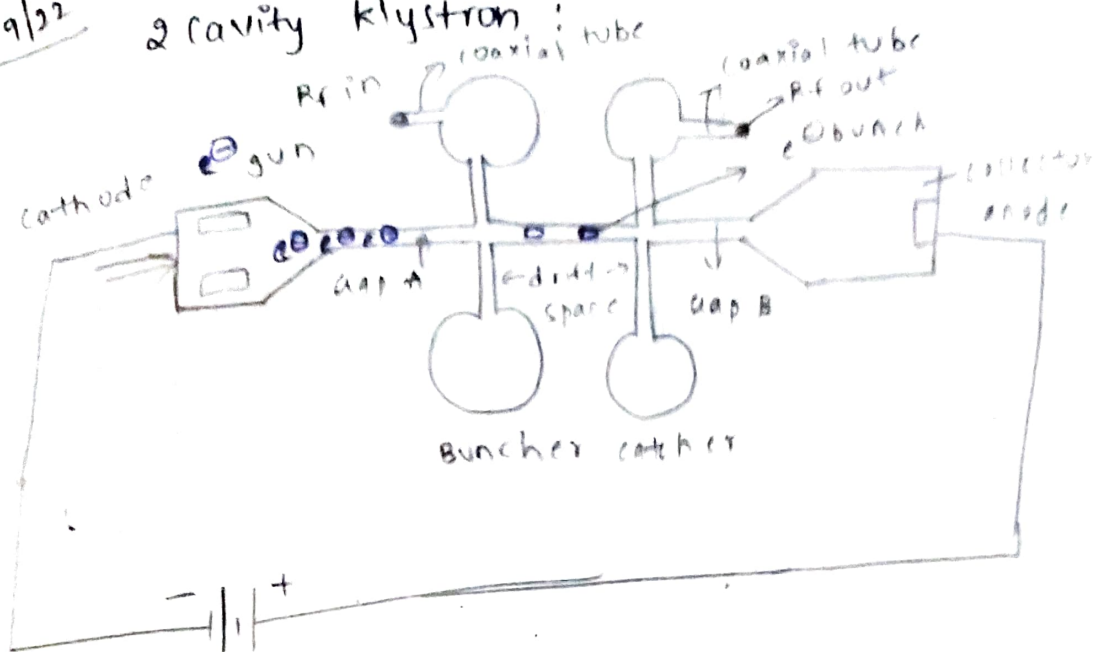 9/22
2 cavity klystron :
coaxial tube
Rf in
coaxial tube
Rf out
e⊖ bunch
e⊖ gun
cathode
collector
anode
e⊖ e⊖ e⊖
Gap A
←drift→
space
Gap B
Buncher catcher
- +